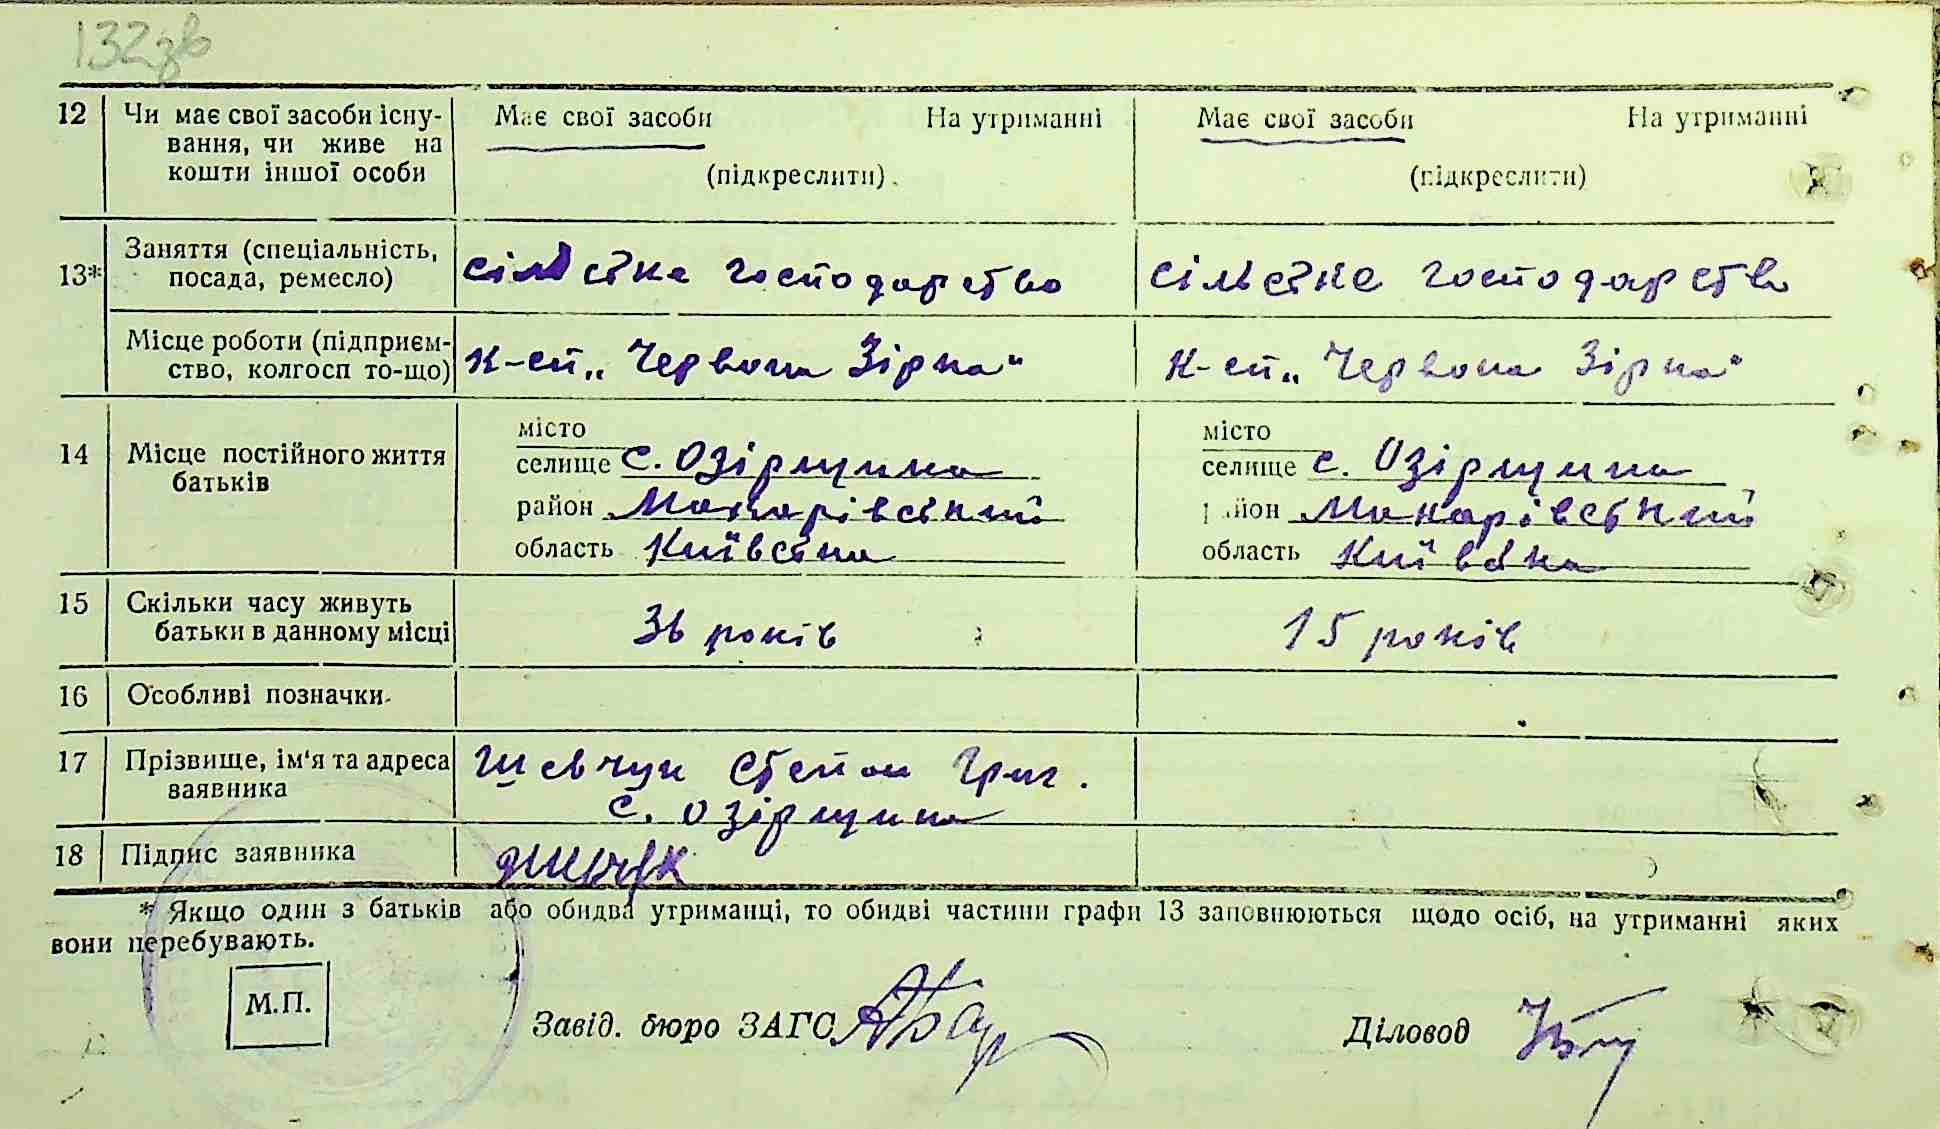 132зв
12 Чи має свої засоби існу-
вання, чи живе на
кошти іншої особи
Має свої засоби На утриманні
(підкреслити)
Має свої засоби На утриманні
(підкреслити)
13* Заняття (спеціальність,
посада, ремесло)
сільське господарство
сільське господарство
Місце роботи (підприєм-
ство, колгосп то-що)
К-сп „Червона Зірка"
К-сп „Червона Зірка"
14 Місце постійного життя
батьків
місто
селище с. Озірщина
район Макарівський
область Київська
місто
селище с. Озірщина
район Макарівський
область Київська
15 Скільки часу живуть
батьки в данному місці
36 років
15 років
16 Особливі позначки
17 Прізвище, ім'я та адреса
заявника
Шевчук Степан Григ.
с. Озірщина
18 Підпис заявника
* Якщо один з батьків або обидва утриманці, то обидві частини графи 13 заповнюються щодо осіб, на утриманні яких
вони перебувають.
М.П.
Завід. бюро ЗАГС
Діловод